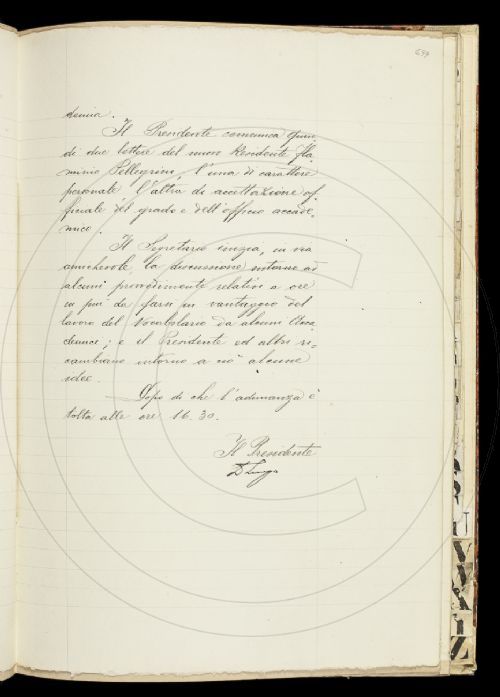 637
demia.
Il Presidente comunica quin-
di due lettere del nuovo Residente Fla-
minio Pellegrini, l'una di carattere
personale l'altra di accettazione of-
ficiale del grado e dell'officio accade-
mico.
Il Segretario inizia, in via
amichevole, la discussione intorno ad
alcuni provvedimenti relativi a ore
in più da farsi in vantaggio del
lavoro del Vocabolario da alcuni Acca-
demici; e il Presidente ed altri si
cambiano intorno a ciò alcune
idee.
Dopo di che l'adunanza è
tolta alle ore 16.30.
Il Presidente
U
V
X
Y
Z